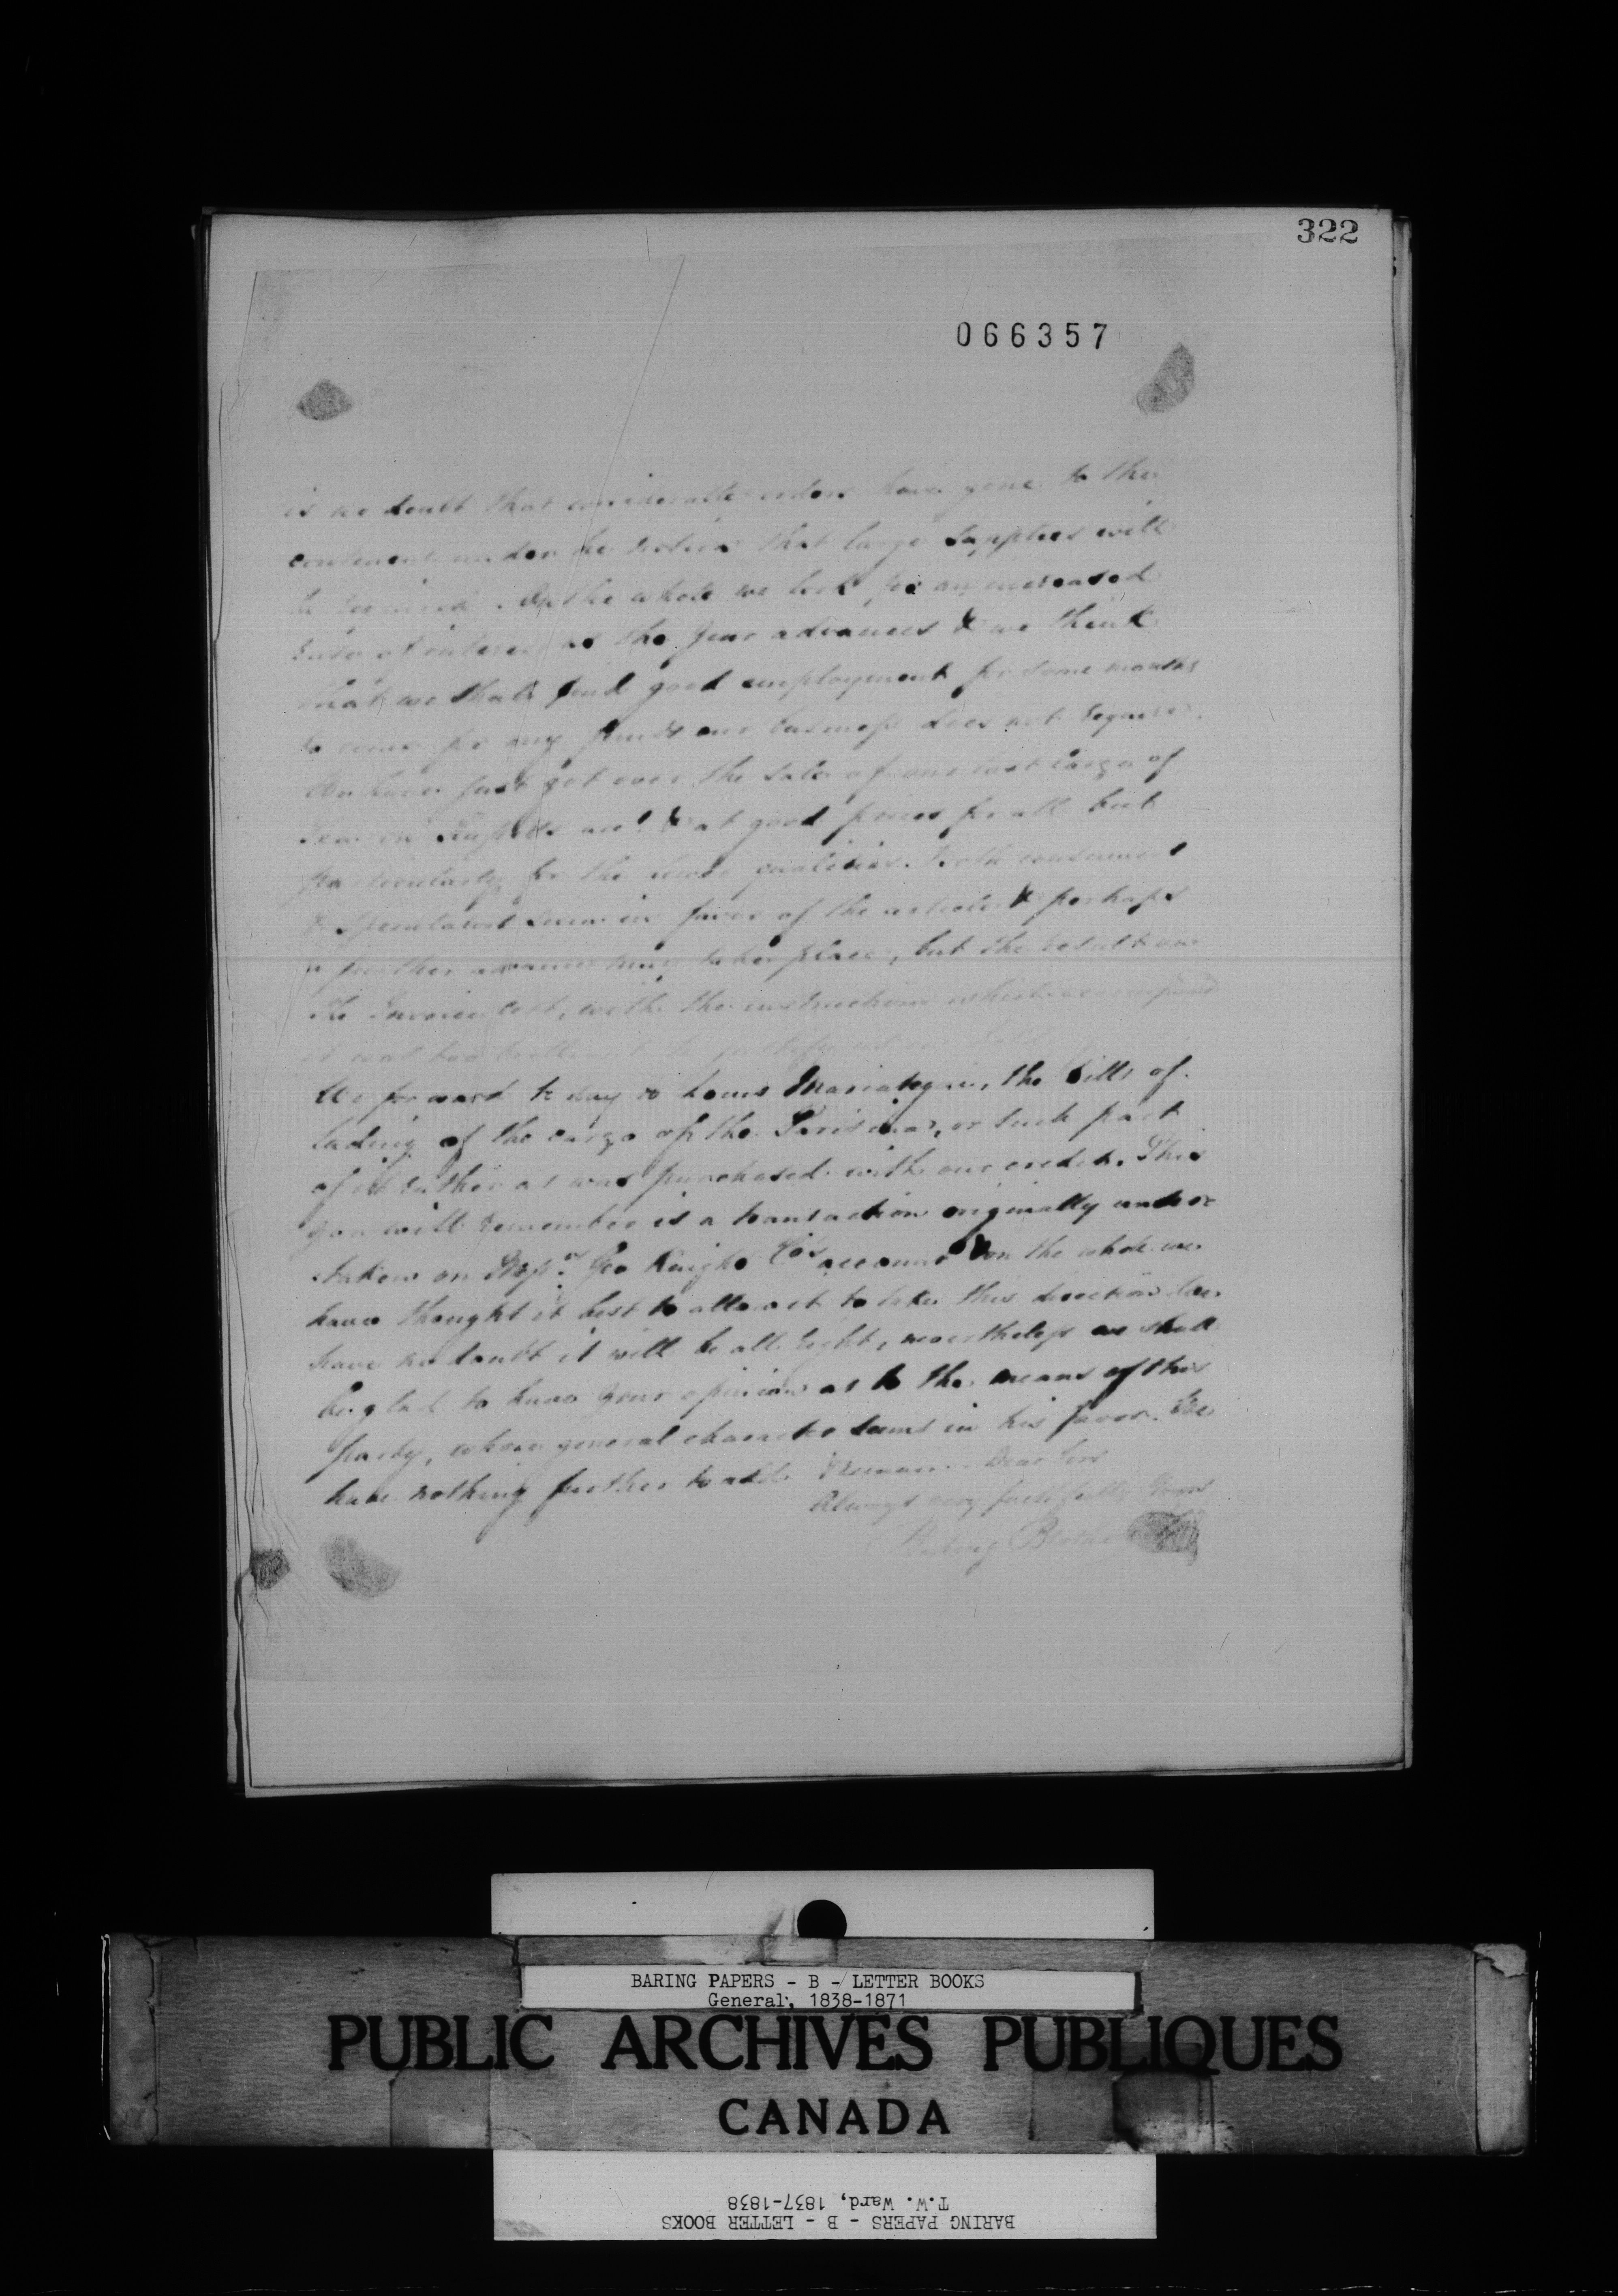 322
066357
is no doubt that considerable orders have gone to the
continent under the notion that large supplies will
be required. On the whole we look for an increased
rate of interest as the year advances & we think
that we shall find good employment for some months
to come for any funds our business does not require.
We have just got over the sale of our last cargo of
Teas in Russells acct & at good prices for all but
particularly for the lower qualities. Both consumers
& speculators seem in favor of the article & perhaps
a further advance may take place, but the result on
the Invoice cost, with the instructions which accompanied
it was too brilliant to justify us in holding
We forward to day to Louis the bills of
lading of the cargo of the or such part
of it rather as was purchased with our credit. This
you will remember is a transaction originally under
taken on Messrs Geo Knight Co's account & on the whole we
have thought it best to allow it to take this direction. We
have no doubt it will be all right, nevertheless we shall
be glad to have your opinion as to the means of this
party, whose general character seems in his favor. We
have nothing further to add & remain Dear Sir
Always very faithfully Yours
Baring Brothers
BARING PAPERS - B - LETTER BOOKS
General, 1838-1871
PUBLIC ARCHIVES PUBLIQUES
CANADA
T.W. Ward, 1837-1838
BARING PAPERS - B - LETTER BOOKS